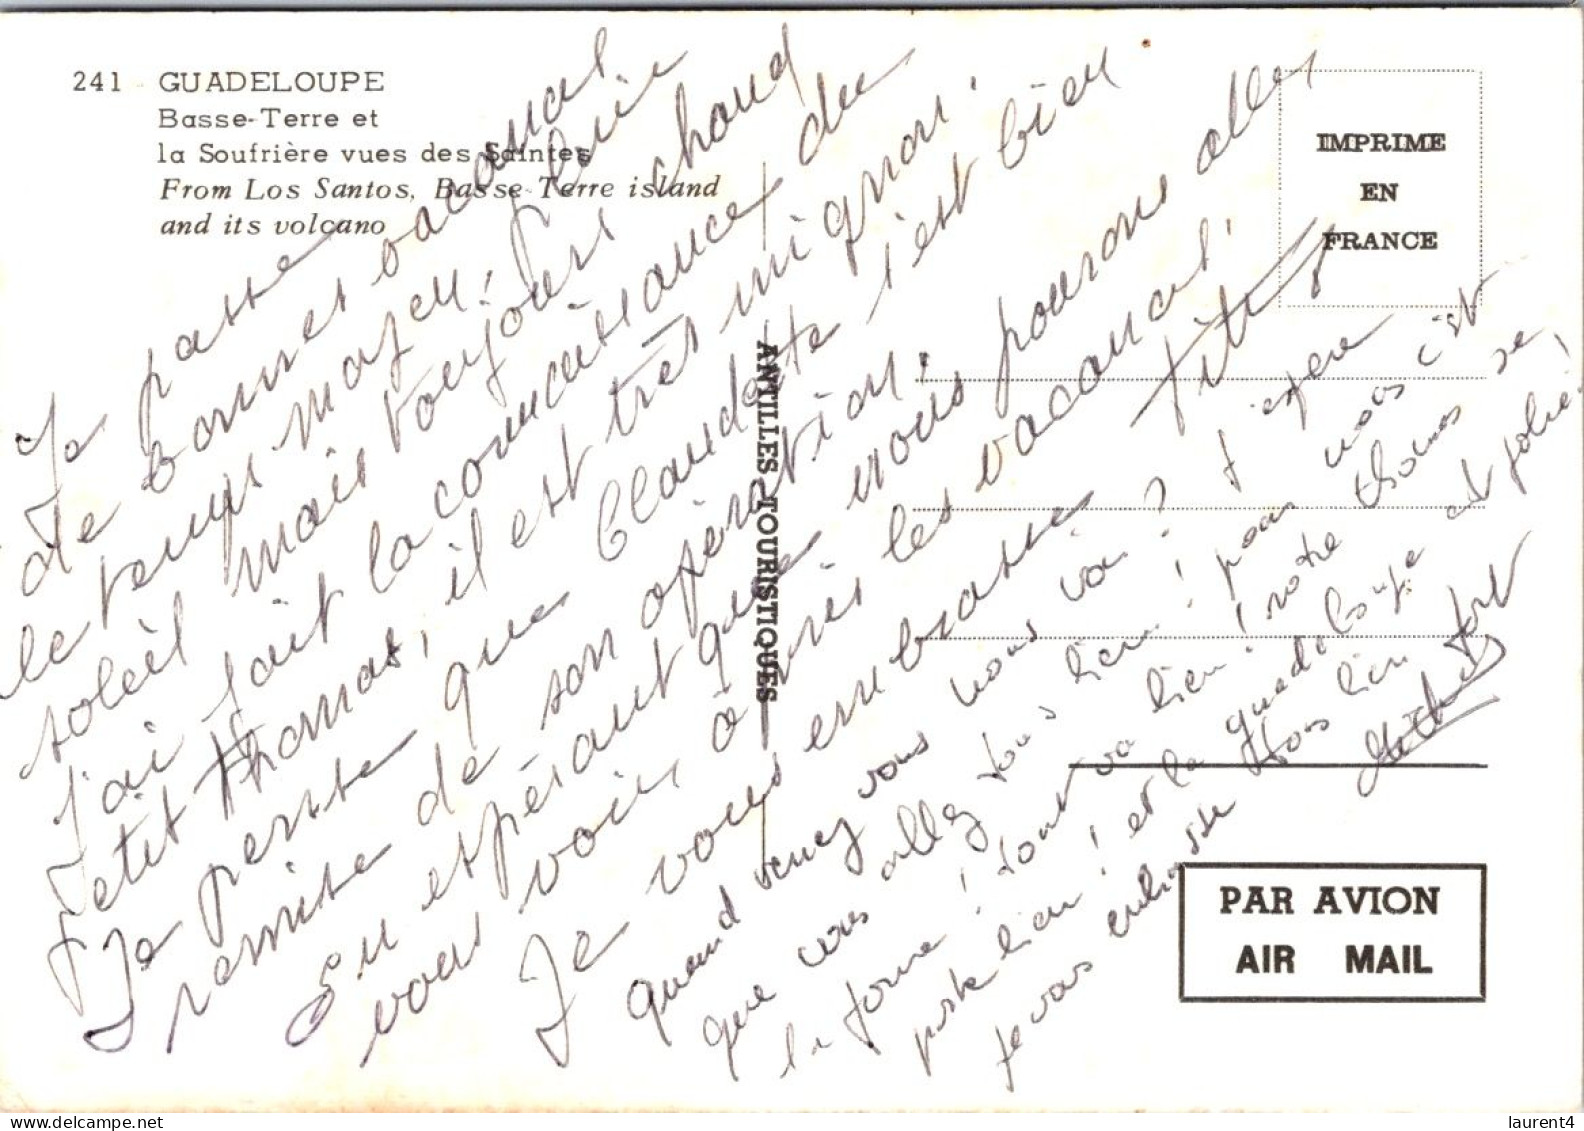 241 - GUADELOUPE
Basse-Terre et
la Soufrière vues des Saintes
From Los Santos, Basse Terre island
and its volcano
IMPRIME
EN
FRANCE
ANTILLES TOURISTIQUES
PAR AVION
AIR MAIL
Je passe
de bonnes vacances
le temps moyen, pluie
soleil mais toujours chaud
J'ai fait la connaissance du
petit Thomas, il est très mignon.
Je pense que Claudette s'est bien
remise de son opération.
En espérant que nous pourrons aller
vous voir, après les vacances,
Je vous embrasse
Quand venez vous nous voir ? J'espère
que vous allez tous bien ! pour nous c'est
la forme ! tout va bien ! notre Thomas se
porte bien ! et la guadeloupe est jolie !
je vous embrasse tous bien fort
laurent4